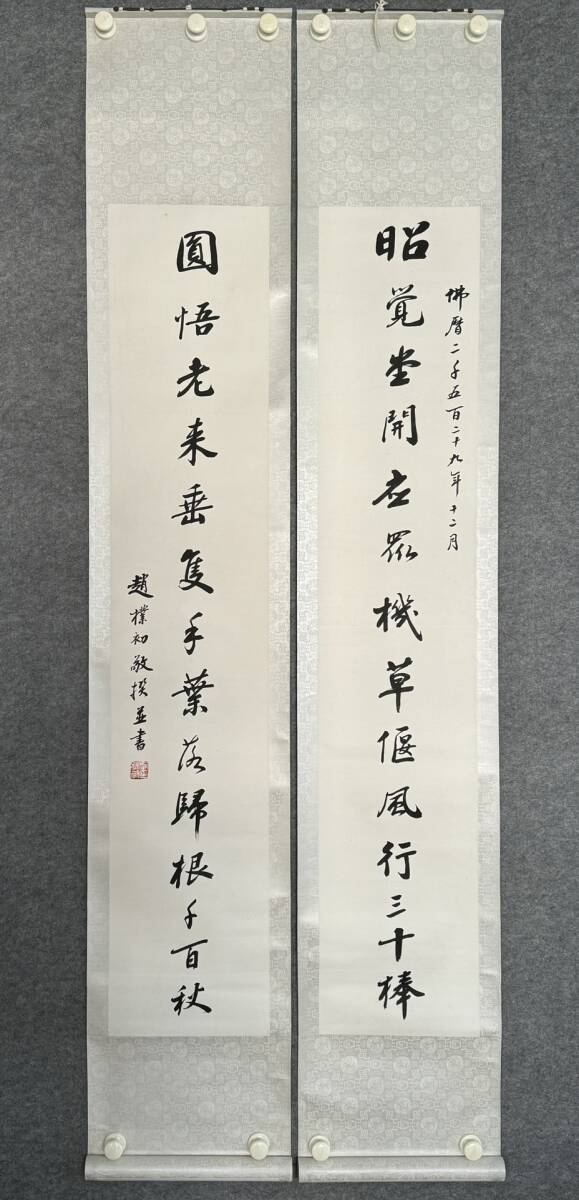 佛曆二千五百二十九年十二月
昭覺堂開应眾機草偃風行三十棒
圓悟老来垂隻手葉落歸根千百秋
趙樸初敬撰並書